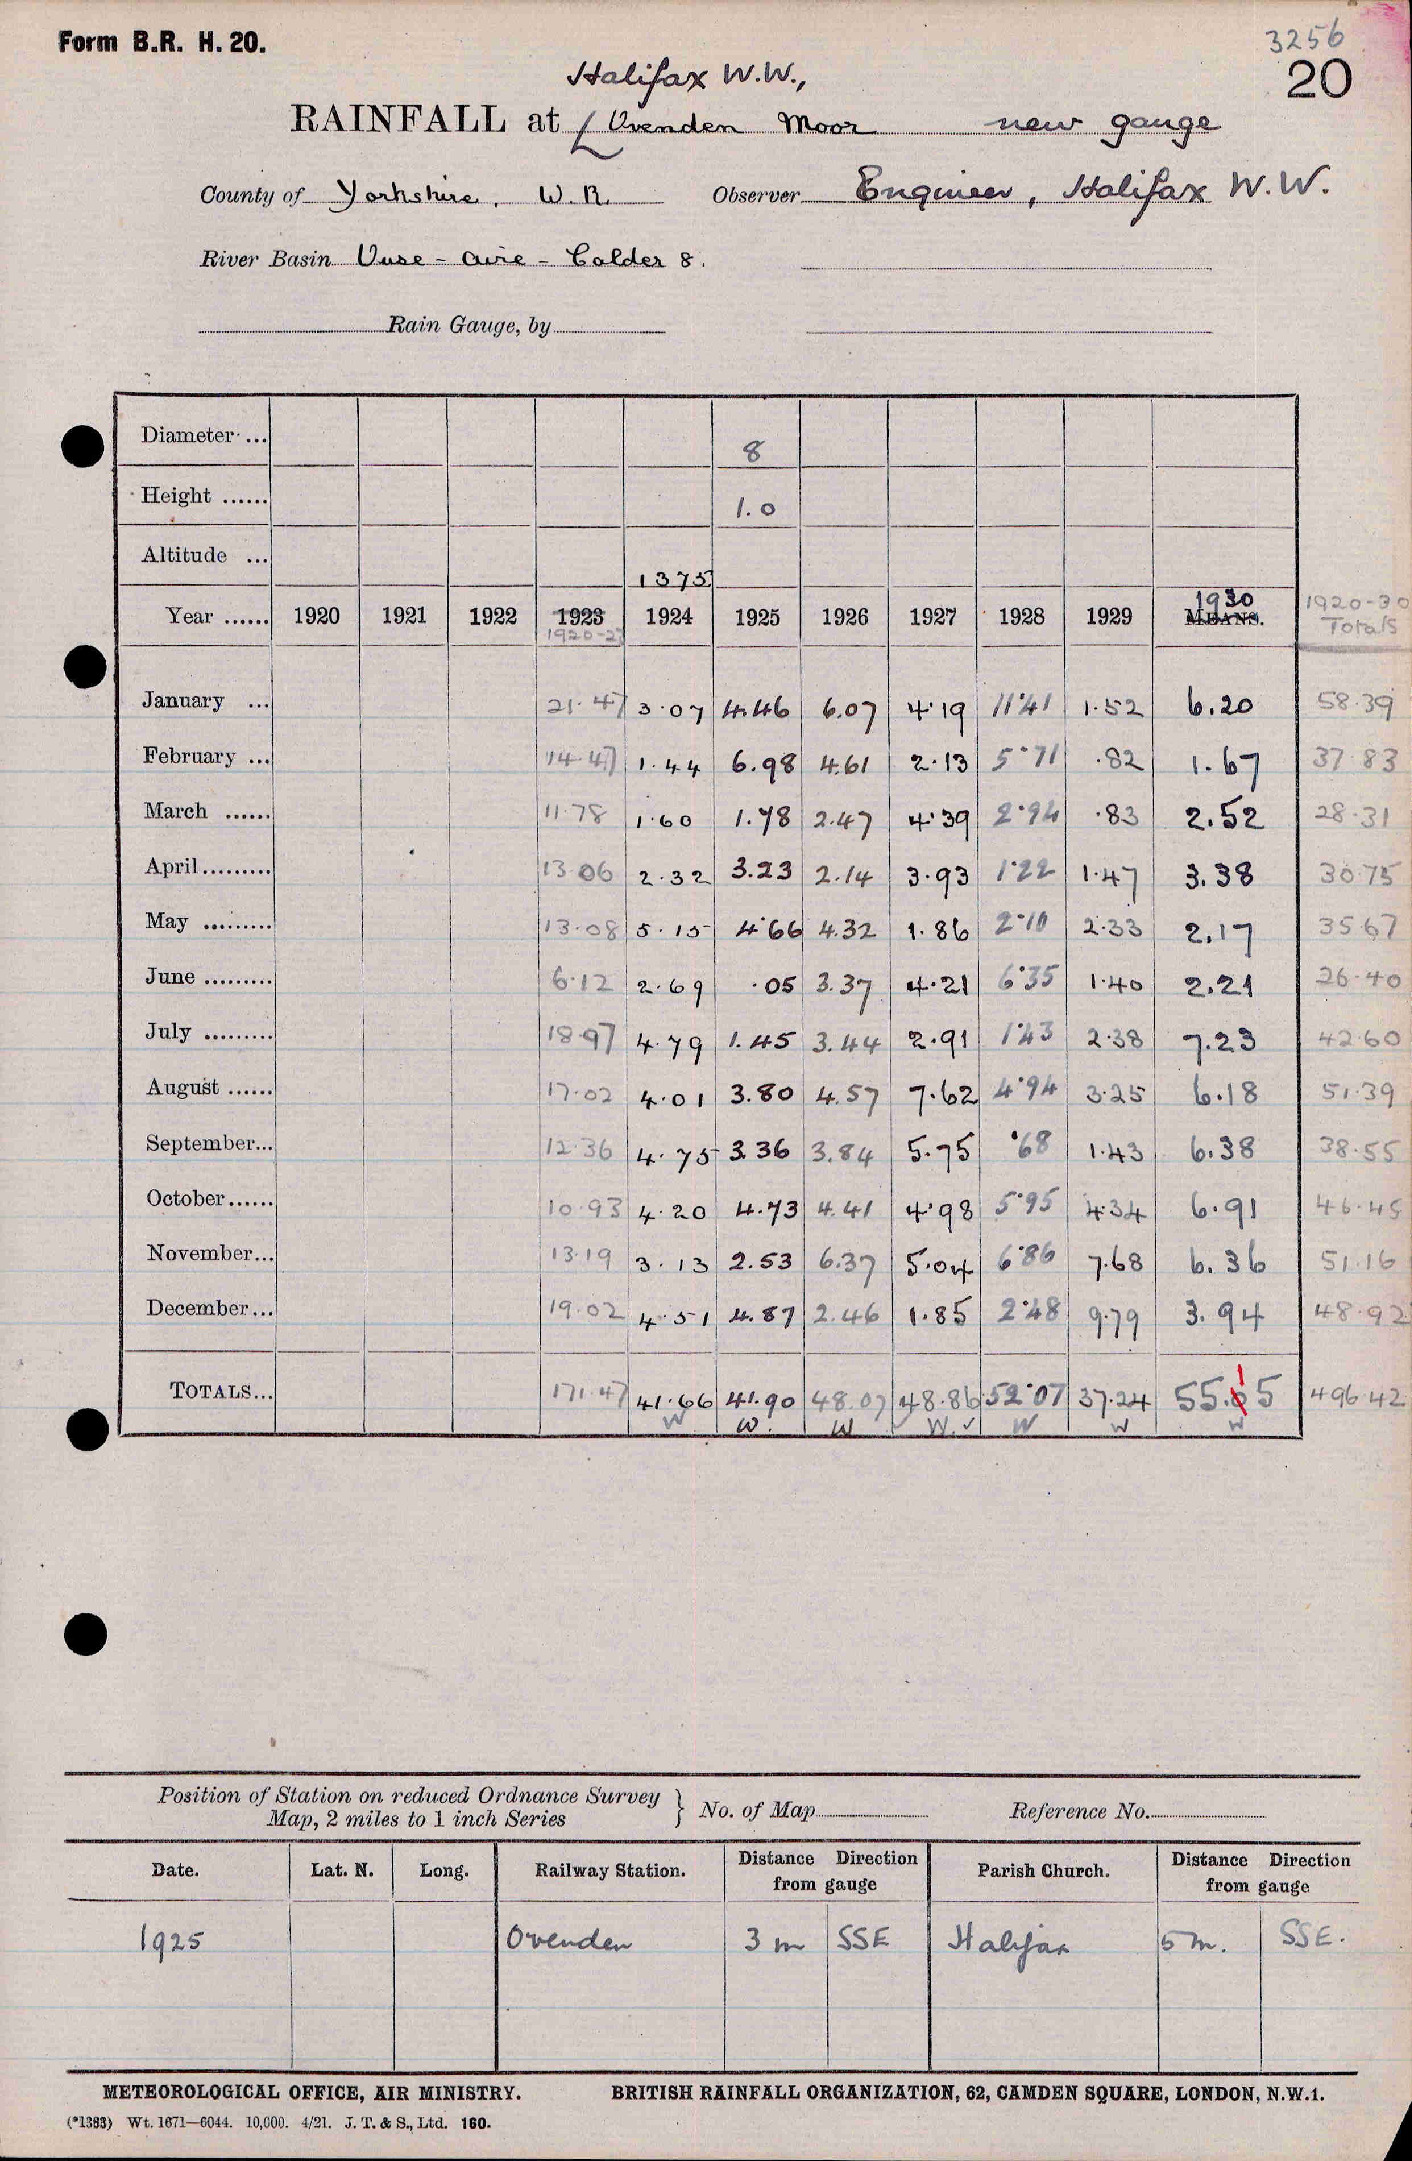 Form B.R. H. 20.
3256
20
Halifax W.W.,
RAINFALL at Ovenden Moor new gauge
County of Yorkshire, W.R. Observer Engineer, Halifax W.W.
River Basin Ouse - Aire - Calder 8.
Rain Gauge, by
Diameter ... 8
Height ...... 1.0
Altitude ... 1375
Year ...... 1920 1921 1922 1923 1924 1925 1926 1927 1928 1929 MEANS. 1930 1920-30 Totals
1920-23
January ... 21.47 3.07 4.46 6.07 4.19 11.41 1.52 6.20 58.39
February ... 14.47 1.44 6.98 4.61 2.13 5.71 .82 1.67 37.83
March ...... 11.78 1.60 1.78 2.47 4.39 2.94 .83 2.52 28.31
April ......... 13.06 2.32 3.23 2.14 3.93 1.22 1.47 3.38 30.75
May ......... 13.08 5.15 4.66 4.32 1.86 2.10 2.33 2.17 35.67
June ......... 6.12 2.69 .05 3.37 4.21 6.35 1.40 2.21 26.40
July ......... 18.97 4.79 1.45 3.44 2.91 1.43 2.38 7.23 42.60
August ...... 17.02 4.01 3.80 4.57 7.62 4.94 3.25 6.18 51.39
September... 12.36 4.75 3.36 3.84 5.75 .68 1.43 6.38 38.55
October...... 10.93 4.20 4.73 4.41 4.98 5.95 4.34 6.91 46.45
November... 13.19 3.13 2.53 6.37 5.04 6.86 7.68 6.36 51.16
December... 19.02 4.51 4.87 2.46 1.85 2.48 9.79 3.94 48.92
TOTALS... 171.47 41.66 41.90 48.07 48.86 52.07 37.24 55.15 496.42
W W. W W. ✓ W W W
Position of Station on reduced Ordnance Survey
Map, 2 miles to 1 inch Series } No. of Map Reference No.
Date. Lat. N. Long. Railway Station. Distance Direction from gauge Parish Church. Distance Direction from gauge
1925 Ovenden 3 m SSE Halifax 5 m. SSE.
METEOROLOGICAL OFFICE, AIR MINISTRY. BRITISH RAINFALL ORGANIZATION, 62, CAMDEN SQUARE, LONDON, N.W.1.
(*1383) Wt. 1671—6044. 10,000. 4/21. J. T. & S., Ltd. 160.